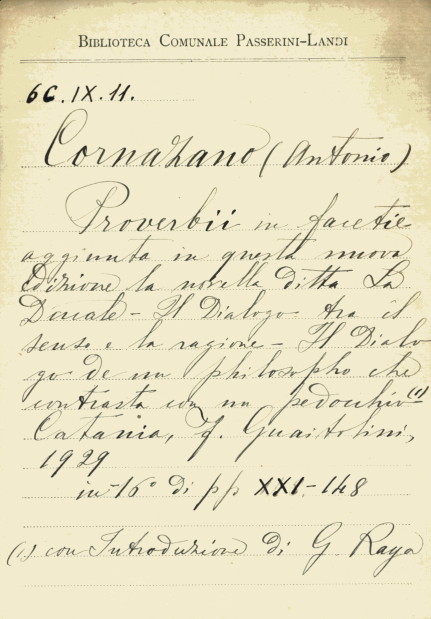 BIBLIOTECA COMUNALE PASSERINI-LANDI
6C.IX.11.
Cornazano (Antonio)
Proverbii in facetie
aggiunta in questa nuova
Edizione la novella ditta La
Ducale - Il Dialogo tra il
senso e la ragione - Il Dialo
go de un philosopho che
contrasta con un pedocchio (1)
Catania, F. Guaitolini,
1929
in-16° di pp XXI-148
(1) con Introduzione di G. Raya